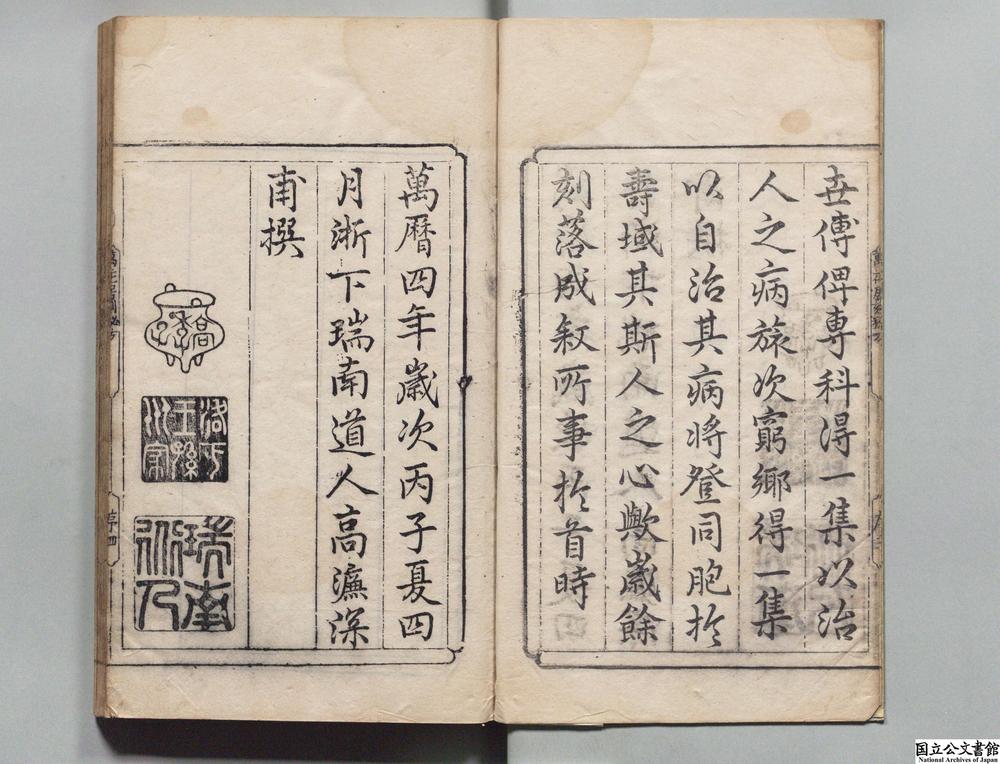 世傅俾專科得一集以治
人之病旅次窮鄉得一集
以自治其病将登同胞於
壽域其斯人之心歟歲餘
刻落成叙所事於首時
萬曆四年歲次丙子夏四
月浙下瑞南道人高濂深
甫撰
高
季
子
瑞南
序四
国立公文書館
National Archives of Japan